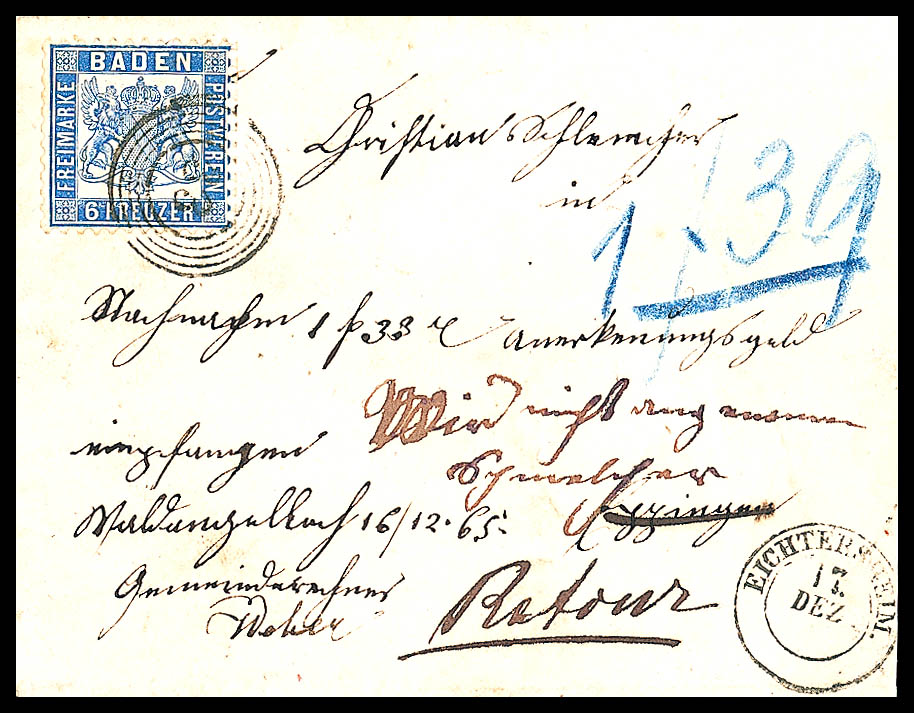 BADEN
FREIMARKE
POSTVEREIN
6 KREUZER
Christian Schlemcher
in
1 / 39
Nachnahm 1 f 33 x Anerkennungsgeld
empfangen
Wird nicht angenommen
Schmelcher
Eppingen
Waldangelloch 16/12.65.
Gemeinderechner
Weber
Retour
EICHTERSHEIM.
17.
DEZ